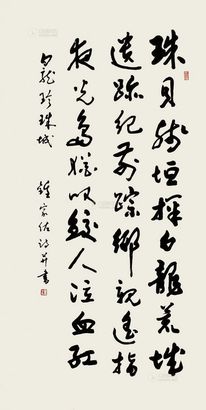 珠貝殘垣探白龍荒城
遺跡紀前踪鄉親遙指
夜光島猶吸鮫人泣血紅
白龍珍珠城
鍾家佐詩并書